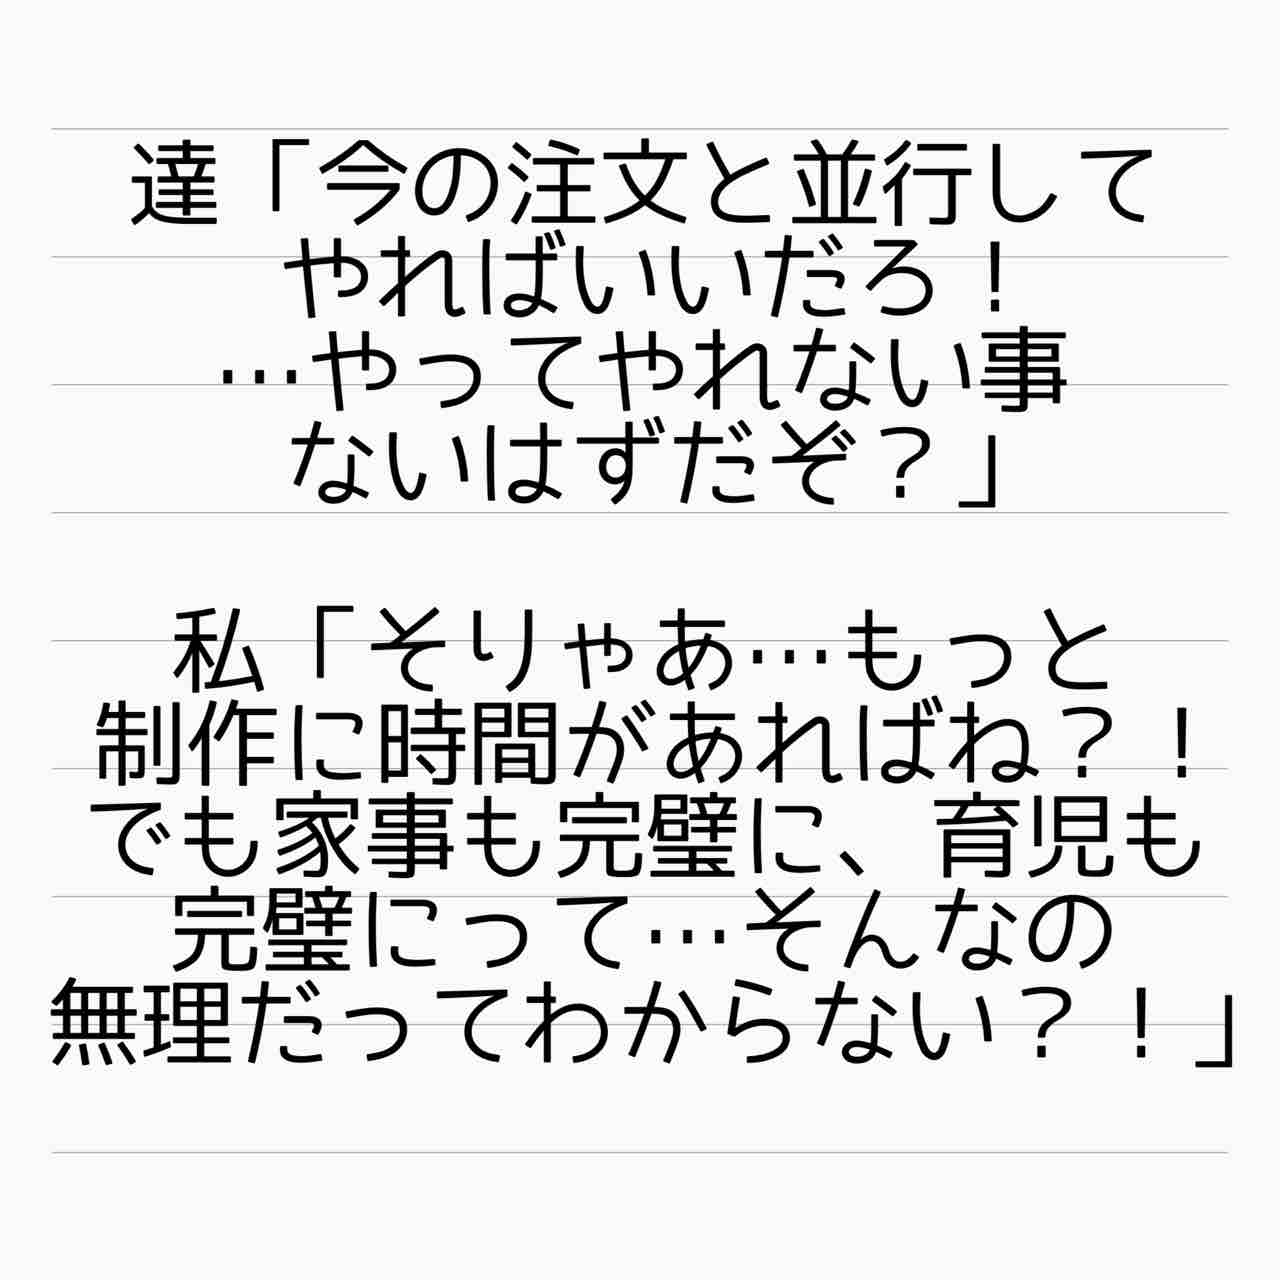 達「今の注文と並行して
やればいいだろ！
…やってやれない事
ないはずだぞ？」
私「そりゃあ…もっと
制作に時間があればね？！
でも家事も完璧に、育児も
完璧にって…そんなの
無理だってわからない？！」